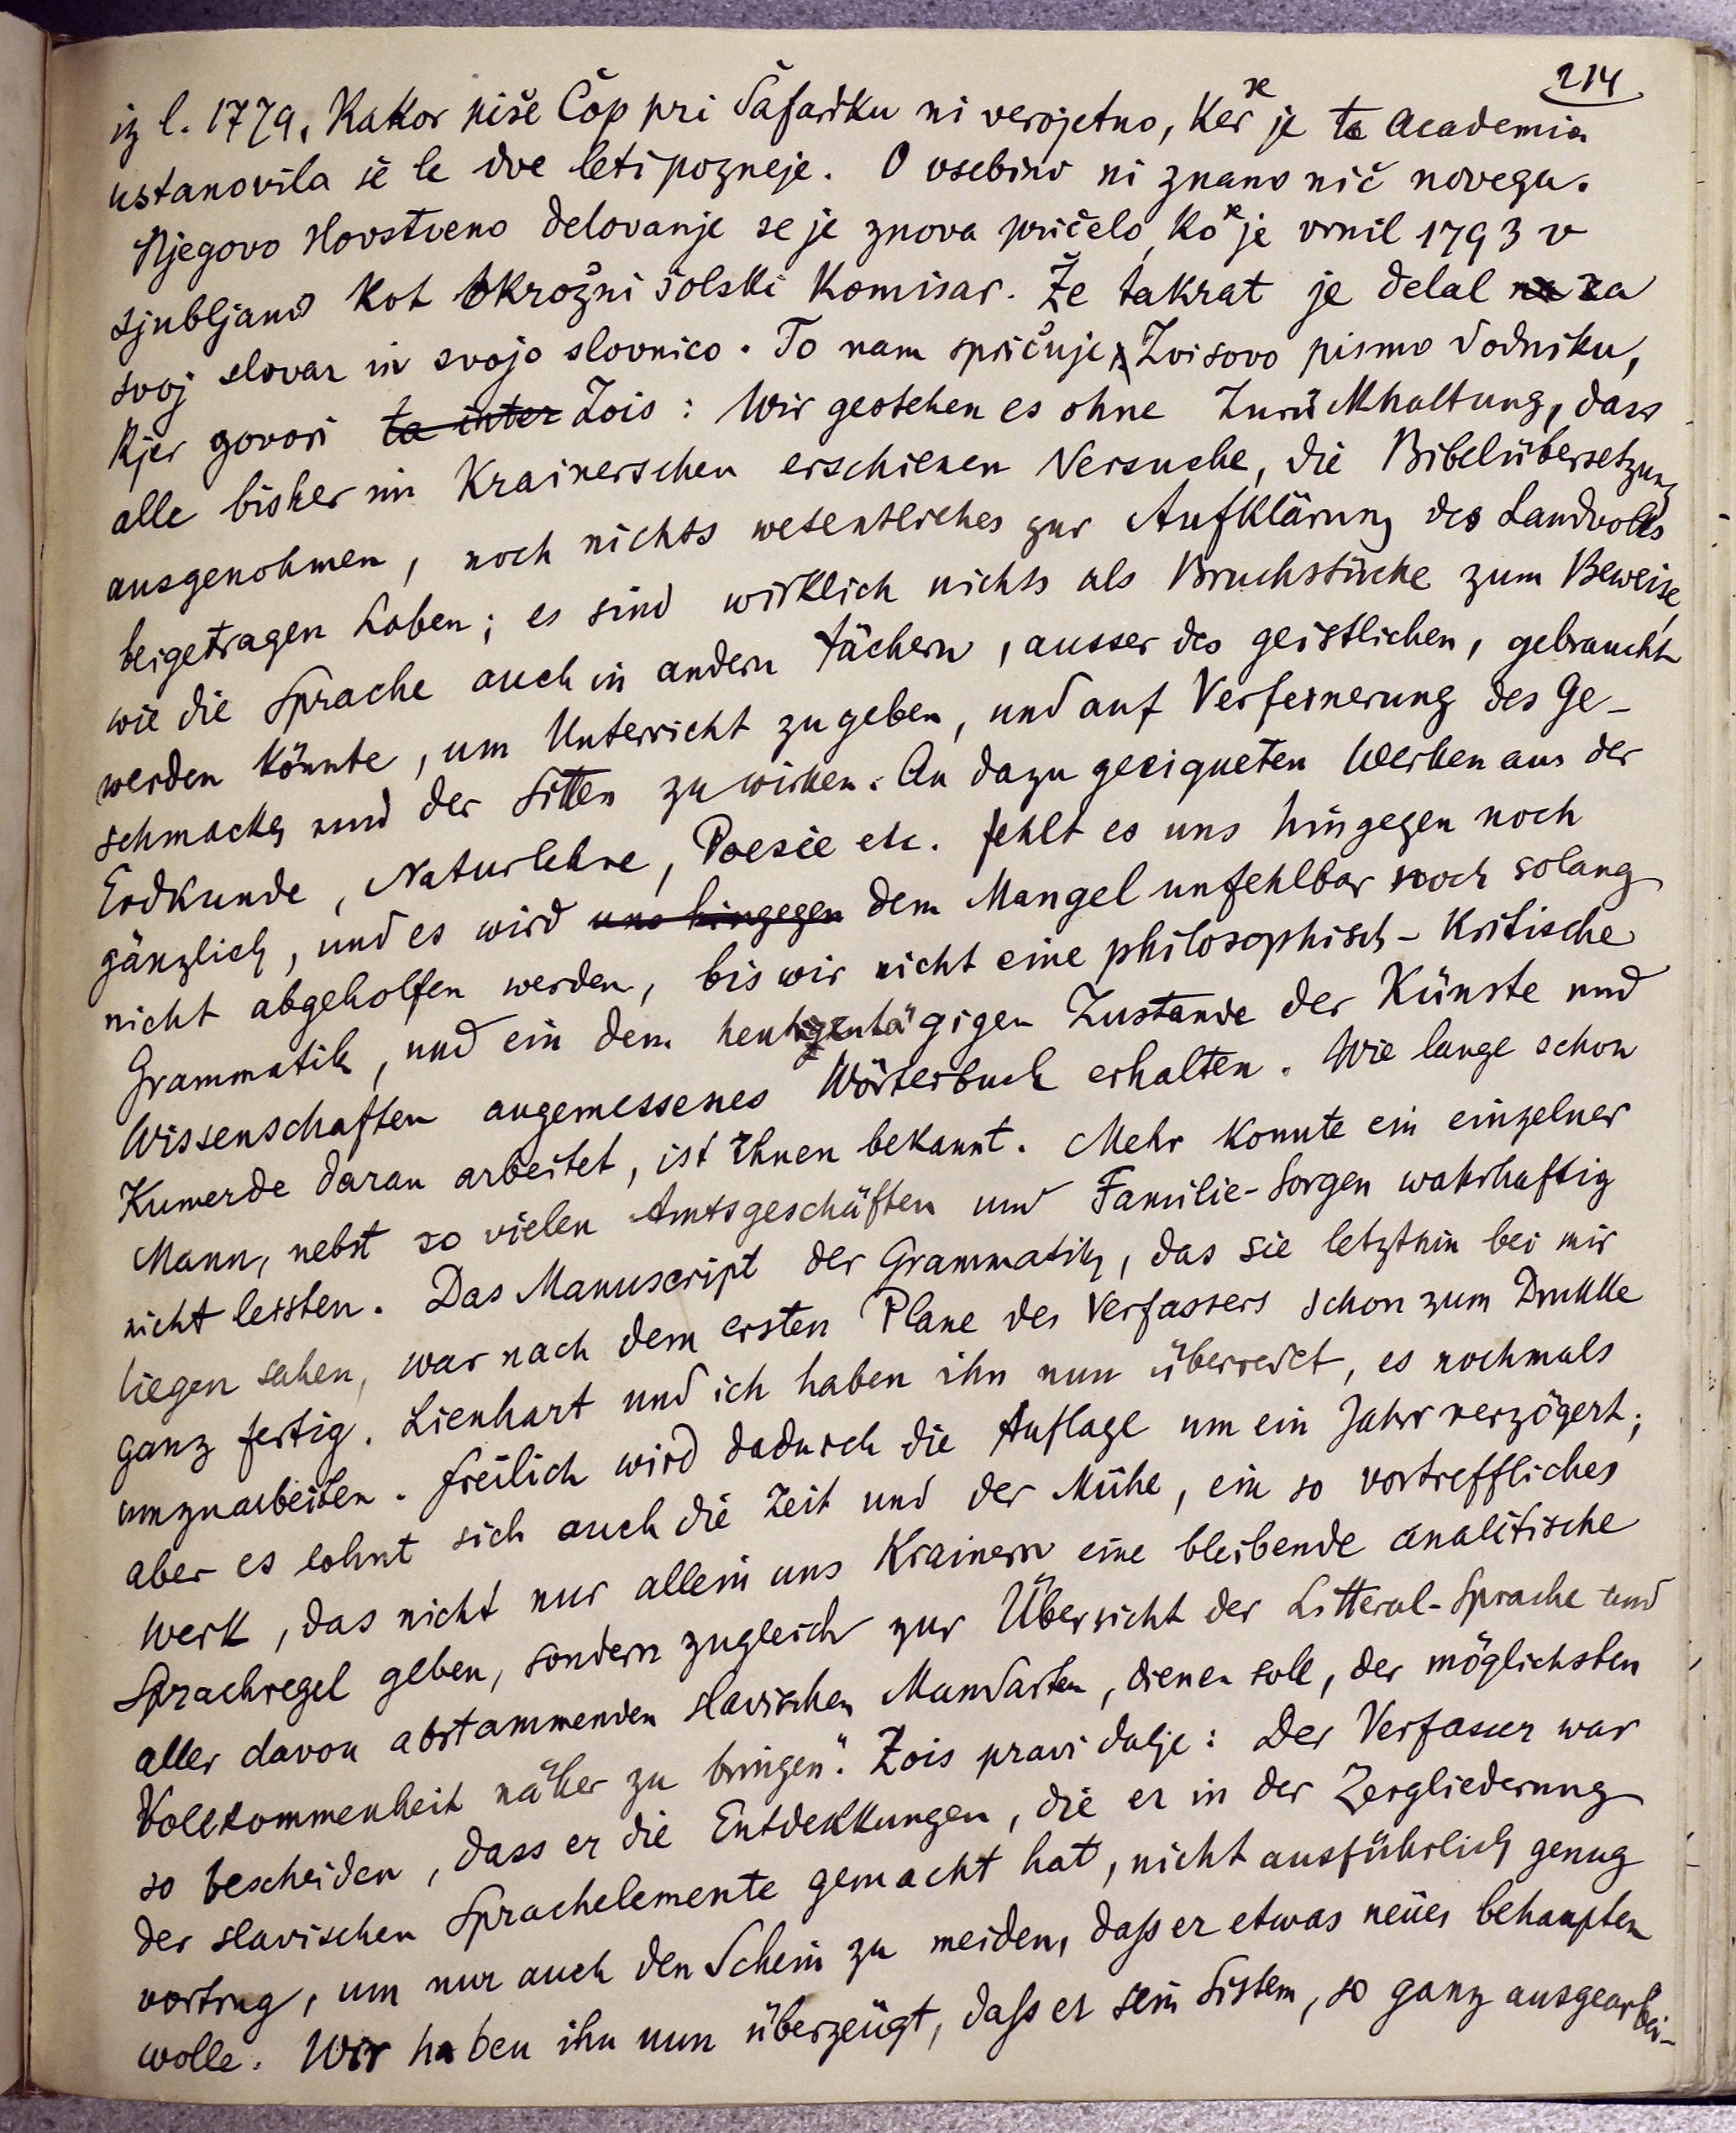 214
iz l. 1779, Kakor piše Čop pri Šafariku ni verojetno, Ker se je ta Academia
ustanovila še le dve leti pozneje. O vsebini ni znano nič novega.
Njegovo slovstveno delovanje se je znova pričelo, Ko se je vrnil 1793 v
Ljubljano Kot okrožni šolski Komisar. Že takrat je delal na za
svoj slovar in svojo slovnico. To nam spričuje Zoisovo pismo Vodniku,
Kjer govori ta inter Zois: Wir gestehen es ohne Zurükkhaltung, dass
alle bisher im Krainerschen erschienen Versuche, die Bibelübersetzung
ausgenohmen, noch nichts wesentliches zur Aufklärung des Landvolks
beigetragen haben; es sind wirklich nichts als Bruchstücke zum Beweise,
wie die Sprache auch in andern Fächern, ausser des geistlichen, gebraucht
werden könnte, um Unterricht zu geben, und auf Verfeinerung des Ge-
schmacks und der Sitten zu wirken. An dazu geeigneten Werken aus der
Erdkunde, Naturlehre, Poesie etc. fehlt es uns hingegen noch
gänzlich, und es wird uns hingegen dem Mangel unfehlbar noch solang
nicht abgeholfen werden, bis wir nicht eine philosophisch-kritische
Grammatik, und ein dem heutigentägigen Zustande der Künste und
Wissenschaften angemessenes Wörterbuch erhalten. Wie lange schon
Kumerde daran arbeitet, ist Ihnen bekannt. Mehr konnte ein einzelner
Mann, nebst so vielen Amtsgeschäften und Familie-Sorgen wahrhaftig
nicht leisten. Das Manuscript der Grammatik, das sie letzthin bei mir
liegen sahen, war nach dem ersten Plane des Verfassers schon zum Drukke
ganz fertig. Lienhart und ich haben ihn nun überredet, es nochmals
umzuarbeiten. Freilich wird dadurch die Auflage um ein Jahr verzögert;
aber es lohnt sich auch die Zeit und der Mühe, ein so vortreffliches
Werk, das nicht nur allein uns Krainern eine bleibende analitische
Sprachregel geben, sondern zugleich zur Übersicht der Litteral-Sprache und
aller davon abstammenden slavischen Mundarten, dienen soll, der möglichsten
Vollkommenheit näher zu bringen". Zois pravi dalje: Der Verfasser war
so bescheiden, dass er die Entdekkungen, die er in der Zergliederung
der slavischen Sprachelemente gemacht hat, nicht ausführlich genug
vortrug, um nur auch den Schein zu meiden, daſs er etwas neües behaupten
wolle. Wir haben ihn nun überzeügt, daſs er sein Sistem, so ganz ausgearbei-